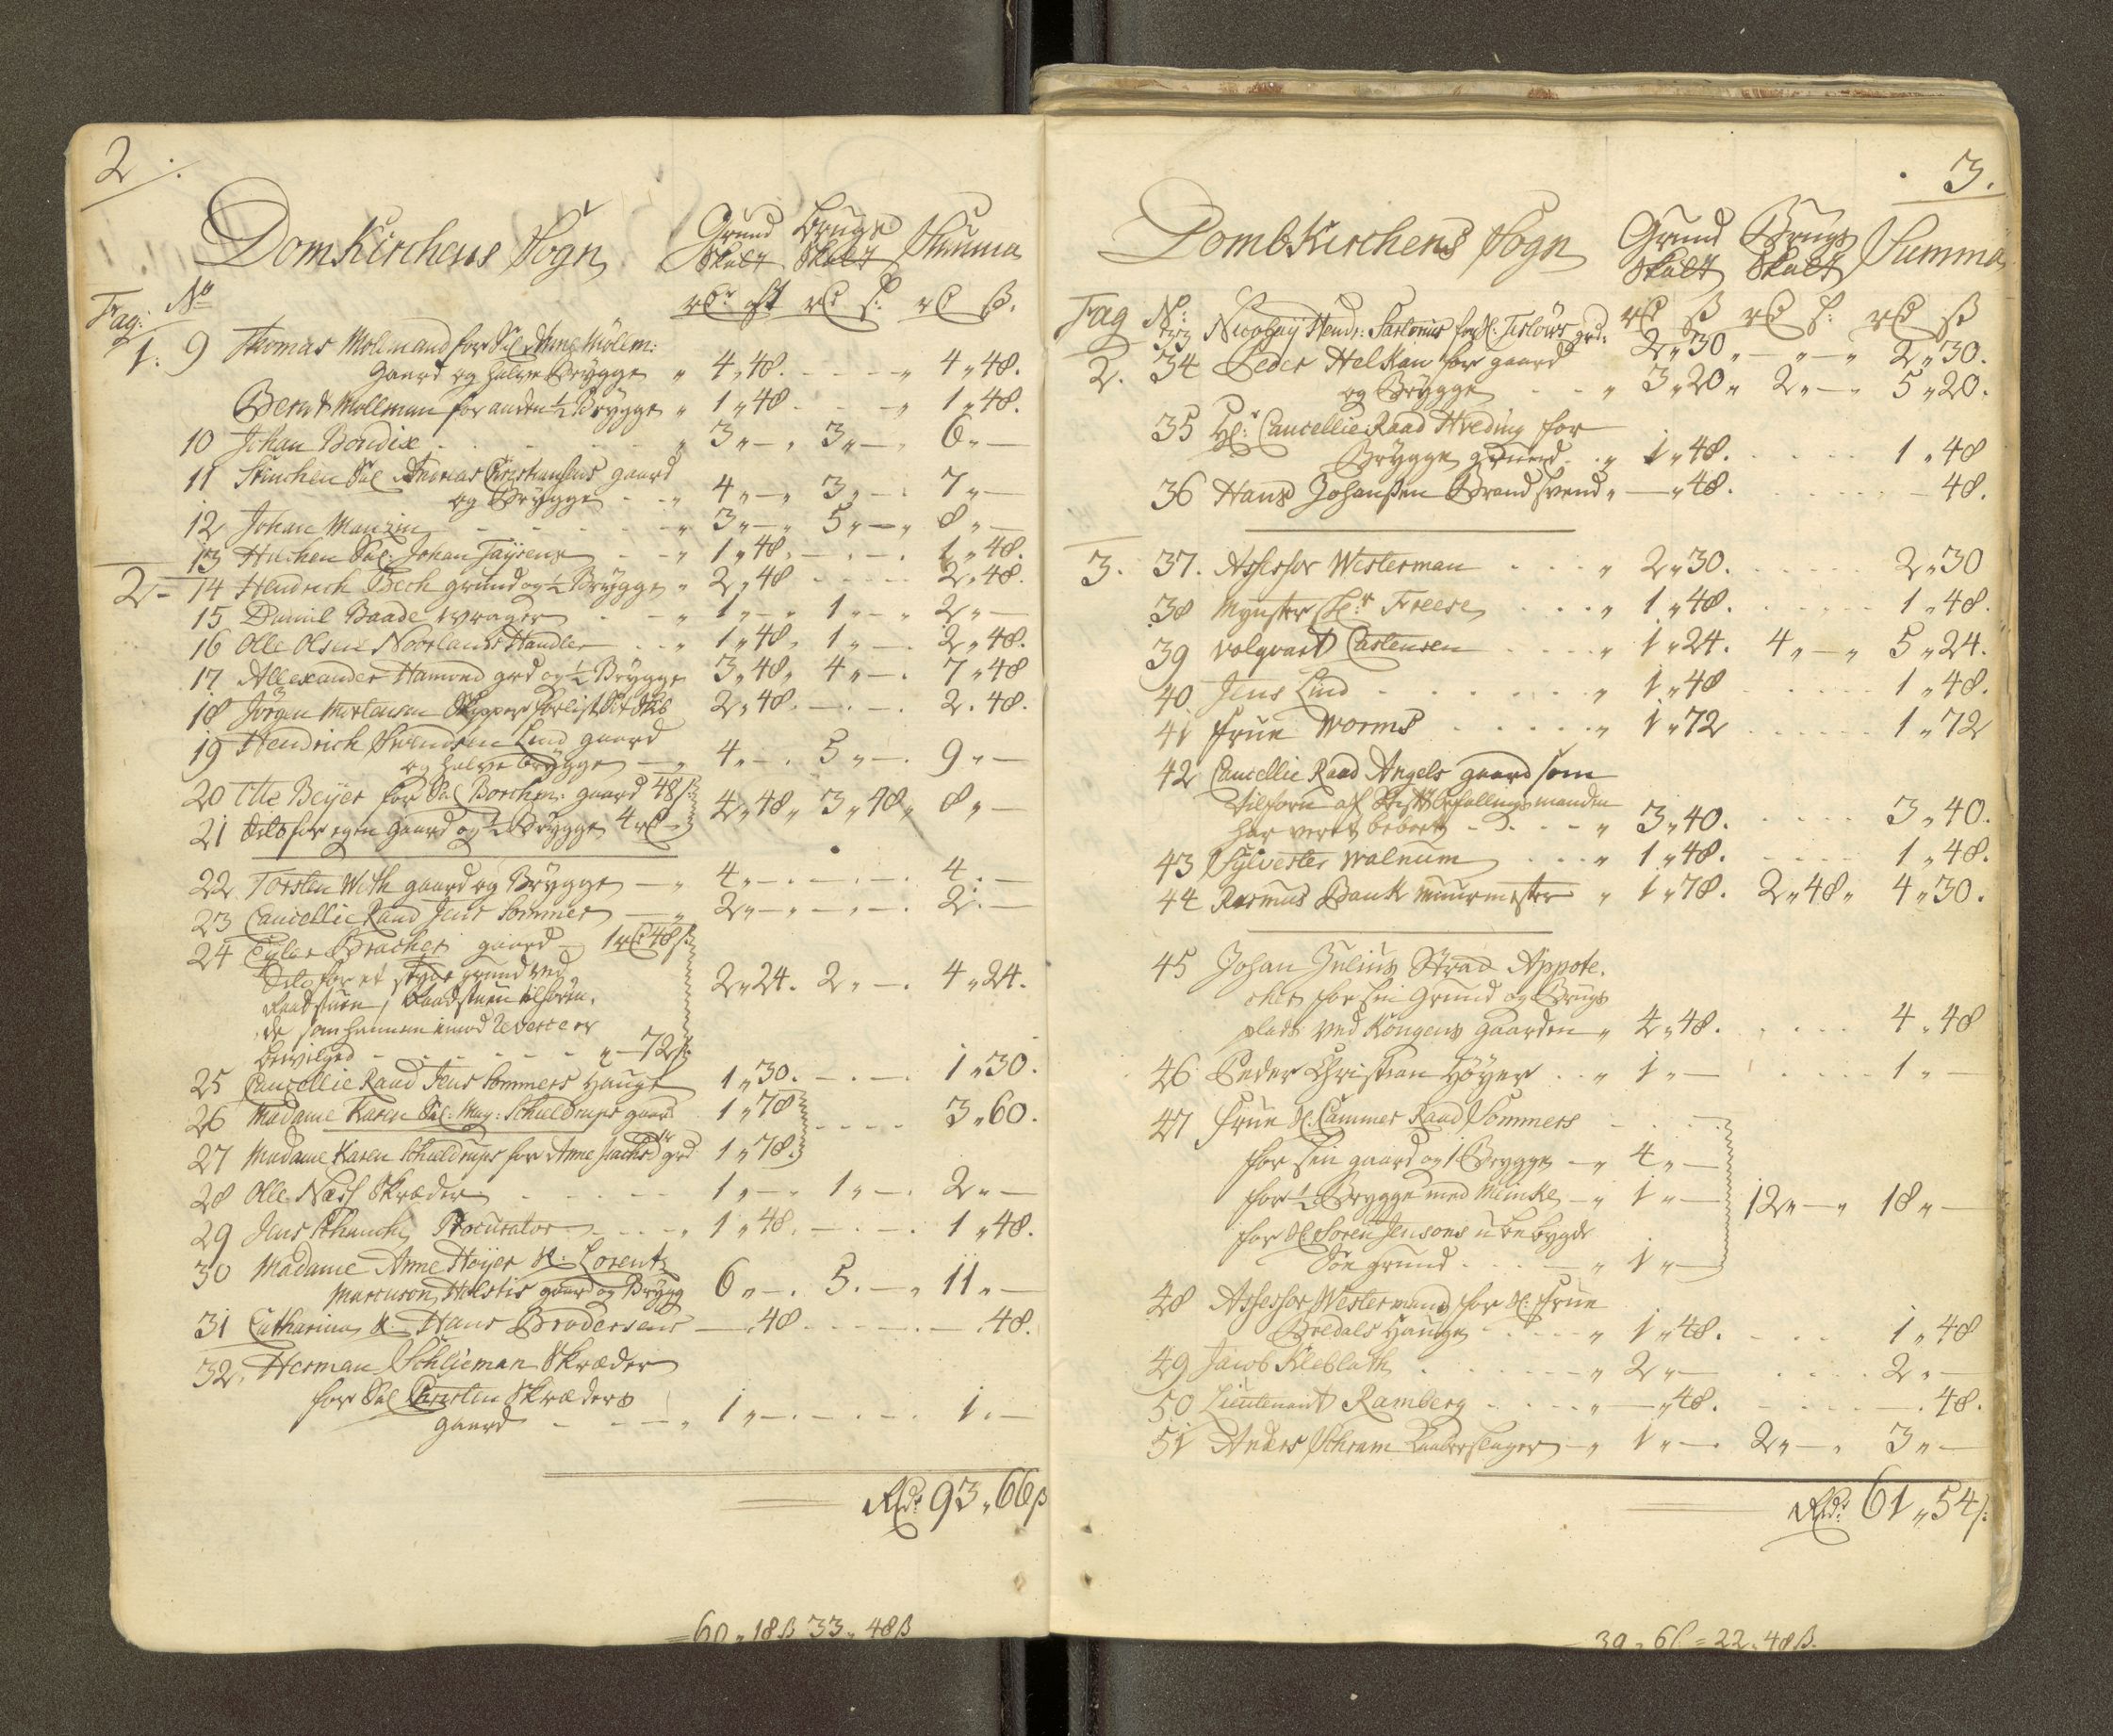 2
Dom Kirchens Sogn Grund Skatt Brugs Skatt Summa
Tag: No rdr rd s: rd ß.
1. 9 Thomas Mollmand for Sal Anne Möllm:
Gaard og halve Brÿgge „ 4„48. - - - „ 4„48.
Berndt Mollman for anden ½ Brÿgge „ 1„48. - - - „ 1„48.
10 Johan Bendix - - - „ 3„—„ 3„—„ 6„—
11 Stinchen Sal Christiansens gaard
og Brÿgge - - „ 4„—„ 3„—. 7„—
12 Johan Manzin - - - „ 3„—„ 5„—„ 8„—
13 Sal: Johan - - „ 1„48. —.—. 1„48.
2 14 Hendrich Bech grund og ½ Brÿgge „ 2„48 - - - 2„48.
15 Daniel Baade wrager - - „ 1„—„ 1„—„ 2„—
16 Olle Olsen Nordlands Handler - - „ 1„48„ 1„—. 2„48.
17 Allexander Hamond grd og ½ Brÿgge 3„48„ 4„—. 7„48
18 Jörgen Mortensen Skipper 2„48. —.—. 2.48.
19 Hendrich Svendsen Lind gaard
og halve brÿgge — „ 4„—. 5„—. 9„—
20 Otte Beÿer for Sal Borchen: gaard 48 s:
21 dito for egen gaard og ½ Brÿgge 4 rd — 4„48„ 3„48„ 8„—
22 Torsten With gaard og Brÿgge — „ 4„—.—.—. 4.—
23 Cancellie Raad Jens Sommer — „ 2„—„—„—. 2.—
24 Eyler Bracher gaard — 1 rd 48 s:
Dito for et støche grund ved
Raadstuen, Raadstuen tilhören,
de som hannem imod Reverce er
bevilged - - - - „—72 s: 2„24. 2„—. 4„24.
25 Cancellie Raad Jens Sommers Hauge 1„30. —.—. 1„30.
26 Madame Karen Sal: Mag: Schieldrups gaard 1„78
27 Madame Karen Schieldrups for Anne grd 1„78. - - - 3„60.
28 Olle Næss Skræder - - - 1„—„ 1„—. 2„—
29 Jens Schanche Procurator - - - „ 1„48. —.—. 1„48.
30 Madame Anne Höÿer Sl: Lorentz
Marcuson Holstis gaar og Brÿgg 6„—. 5.—„ 11„—
31 Catharina Sl: Hans Brodersens —„48 - - - —.48.
32. Herman Schlieman Skræder
for Sal Christen Skræders
gaard - - - „ 1„—.—.—. 1.—
Rdr 93„66ß
=60„18ß 33„48ß
3.
Domb Kirchens Sogn Grund Skatt Brugs Skatt Summa
Tag N: rd ß rd s: rd ß
33 Nicolaÿ Hendr: Sartorius for Sl: grd. 2„30„—„—„ 2„30.
2. 34 Peder Helkan for gaard
og Brÿgge - - „ 3„20„ 2„—. 5„20.
35 Hr: Cancellie Raad Hveding for
Brÿgge grund - „ 1„48. - - - 1„48
36 Hans Johansen Brandsvend „—„48. - - - —48.
3. 37. Assessor Westerman - - - „ 2„30. - - - 2„30
38 Mÿnster Freese - - - „ 1„48. - - - 1„48.
39 volqvart Castensen - - - „ 1„24. 4„—„ 5„24.
40 Jens Lind - - - „ 1„48 - - - 1„48.
41 Frue Worms - - - „ 1„72 - - - 1„72
42 Cancellie Raad Angels gaard som
tilforn af Stiftsbefallingsmanden
har veret beboet - - - „ 3„40. - - - 3„40.
43 Sÿlvester Walnum - - - „ 1„48. - - - 1„48.
44 Rasmus Bauk muurmester „ 1„78. 2„48„ 4„30.
45 Johan Julius Strad Appote,
cher for sin Grund og Brugs
plads ved Kongens Gaarden „ 4„48. - - - 4„48
46 Peder Christian Höÿer - - „ 1„— - - - 1„—
47 Frue Sl: Cammer Raad Sommers - - -
for sin gaard og 1 Brygge — „ 4„—
for ½ Brygge med Meinke - „ 1„— 12„—„ 18„—
for Sl: Sören Jensens ubebygde
Söe grund - - - — „ 1„—
48 Assessor Westermand for Sl: Frue
Bredals Hauge - - - „ 1„48. - - - 1„48
49 Jacob Kleblath - - - „ 2„— - - - 2„—
50 Lieutenant Ramberg - - - „—„48. - - - —.48.
51 Anders Schram Kaaberslager — „ 1„—. 2„—„ 3„—
Rdr: 61„54 s:
39„6 s:=22„48ß.